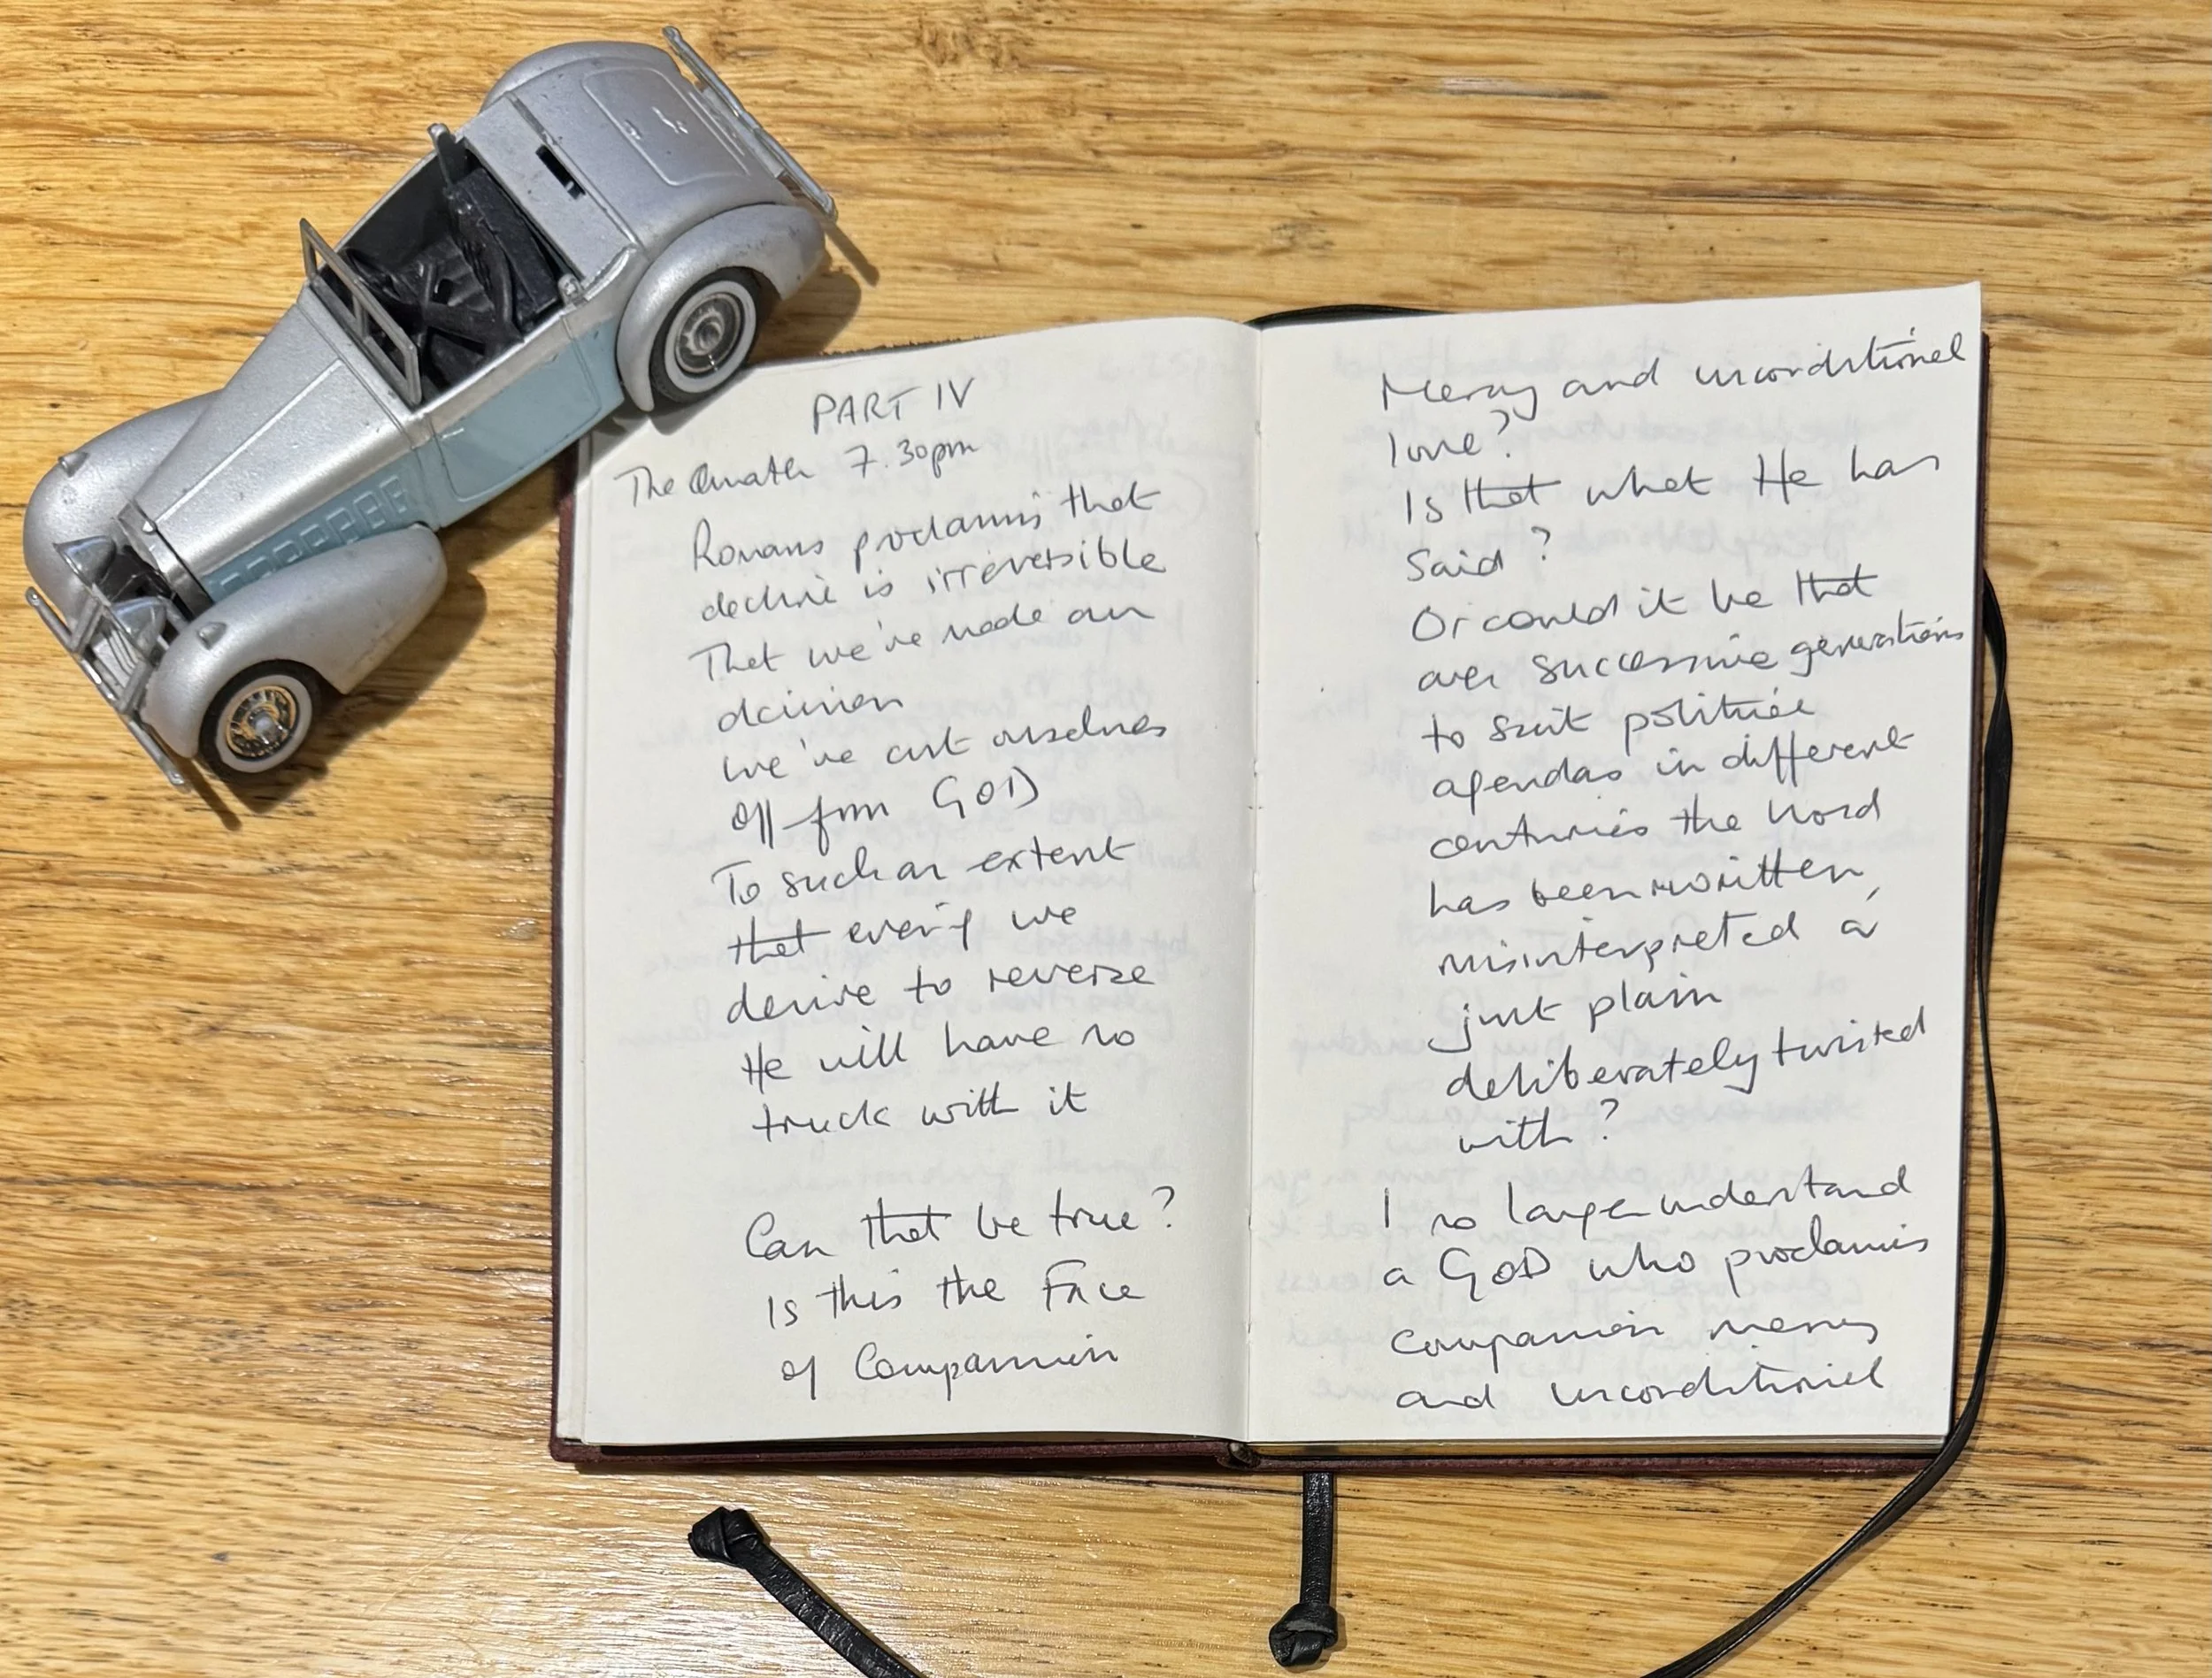 PART IV
The Quath 7.30pm
Romans proclaims that
decline is irreversible
That we've made our
decision
we've cut ourselves
off from GOD
To such an extent
that even if we
desire to reverse
He will have no
truck with it
Can that be true?
Is this the Face
of Compassion
Mercy and unconditional
love?
Is that what He has
Said?
Or could it be that
over successive generations
to suit political
agendas in different
centuries the Word
has been rewritten,
misinterpreted or
just plain
deliberately twisted
with?
I no longer understand
a GOD who proclaims
compassion mercy
and unconditional